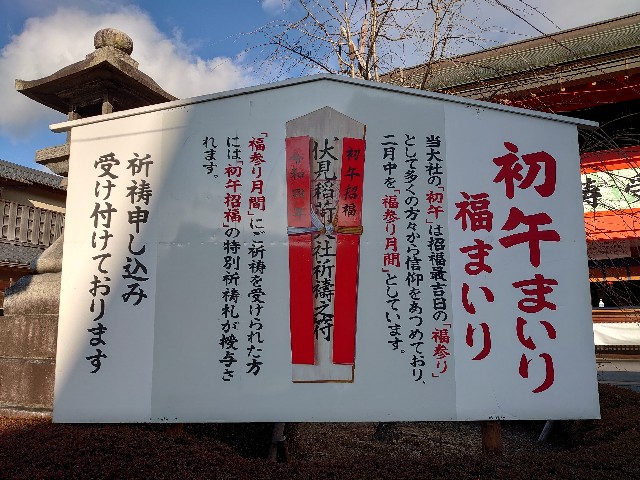 初午まいり
福まいり
当大社の「初午」は招福最吉日の「福参り」
として多くの方々から信仰をあつめており、
二月中を「福参り月間」としています。
初午招福
伏見稲荷大社祈祷之符
「福参り月間」にご祈祷を受けられた方
には「初午招福」の特別祈祷札が授与さ
れます。
祈祷申し込み
受け付けております